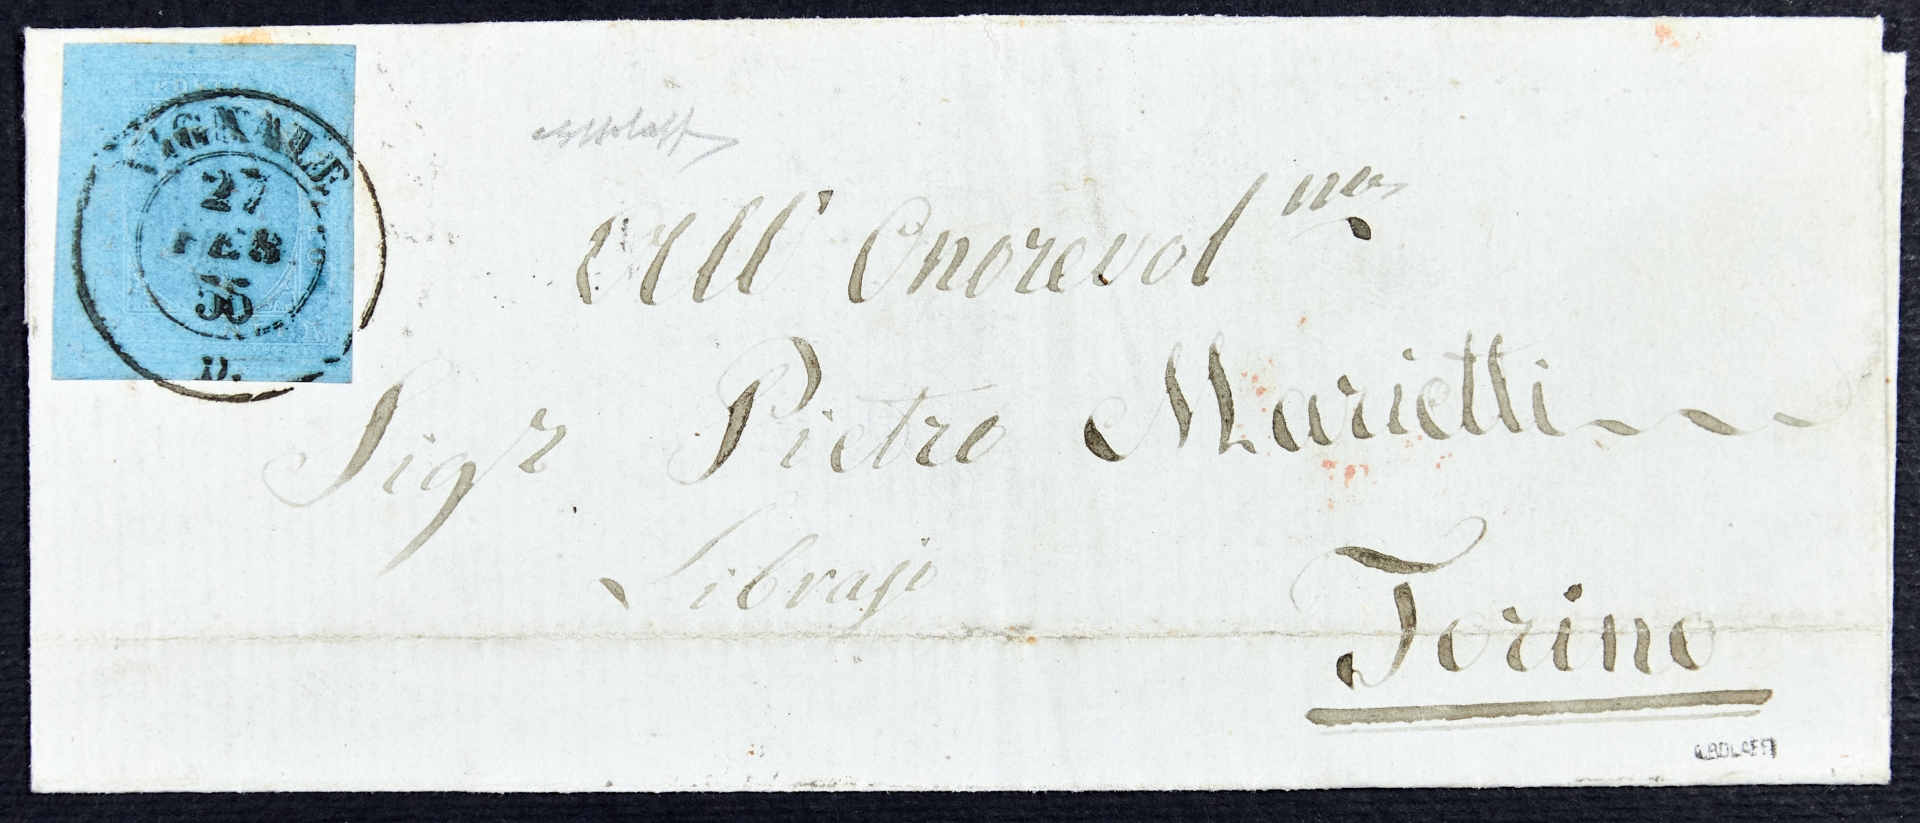 VIGNALE
27
FEB
55
D.
All' Onorevol.mo
Sigr Pietro Marietti
Librajo
Torino